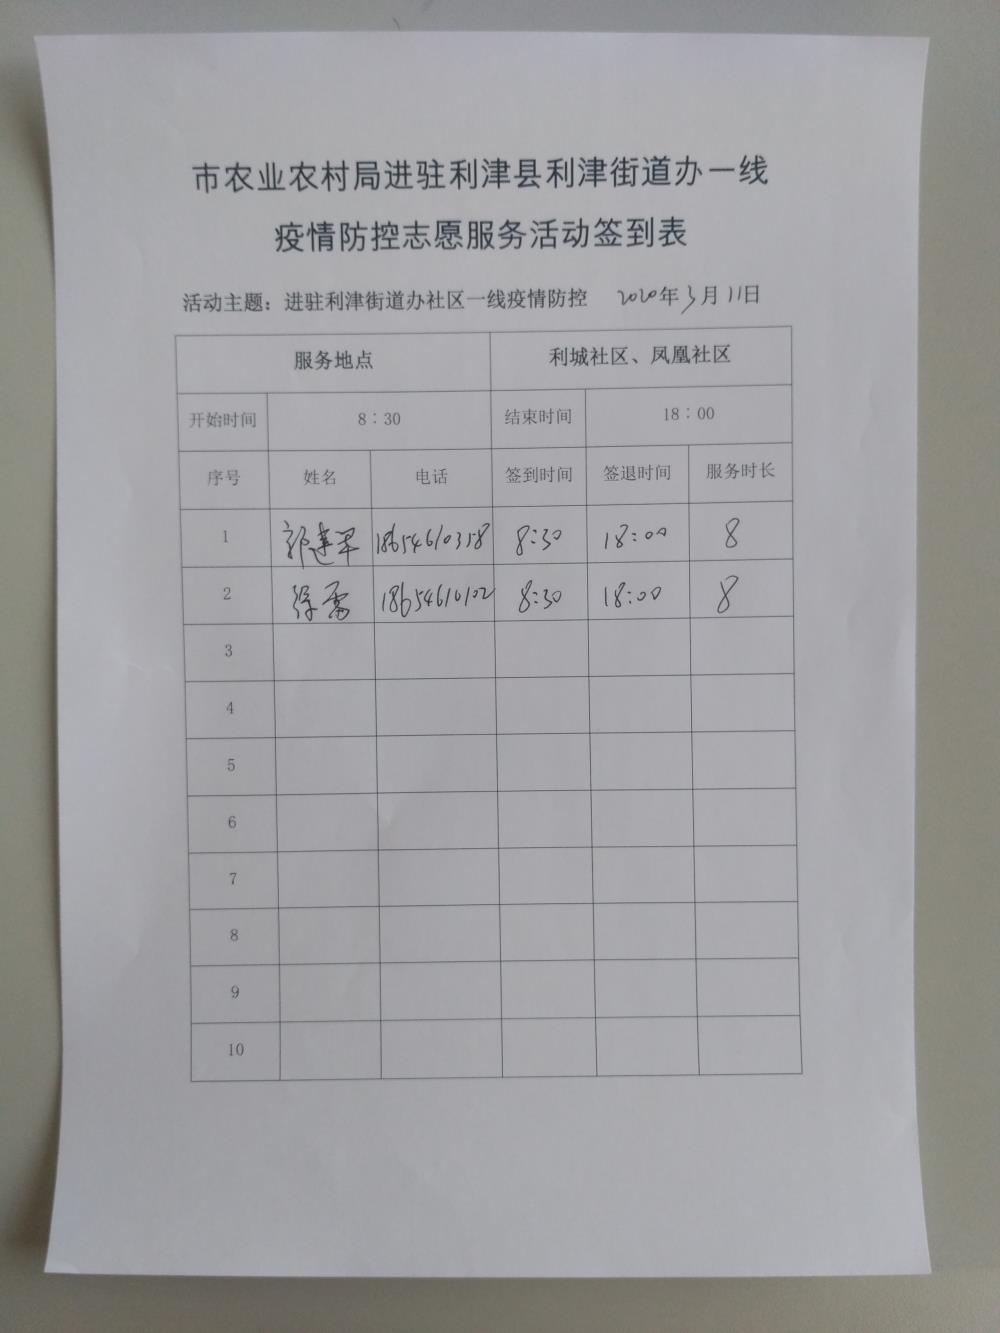 市农业农村局进驻利津县利津街道办一线
疫情防控志愿服务活动签到表
活动主题：进驻利津街道办社区一线疫情防控 2020年3月11日
服务地点 利城社区、凤凰社区
开始时间 8：30 结束时间 18：00
序号 姓名 电话 签到时间 签退时间 服务时长
1 郭建军 18654610358 8:30 18:00 8
2 徐雷 18654610102 8:30 18:00 8
3
4
5
6
7
8
9
10